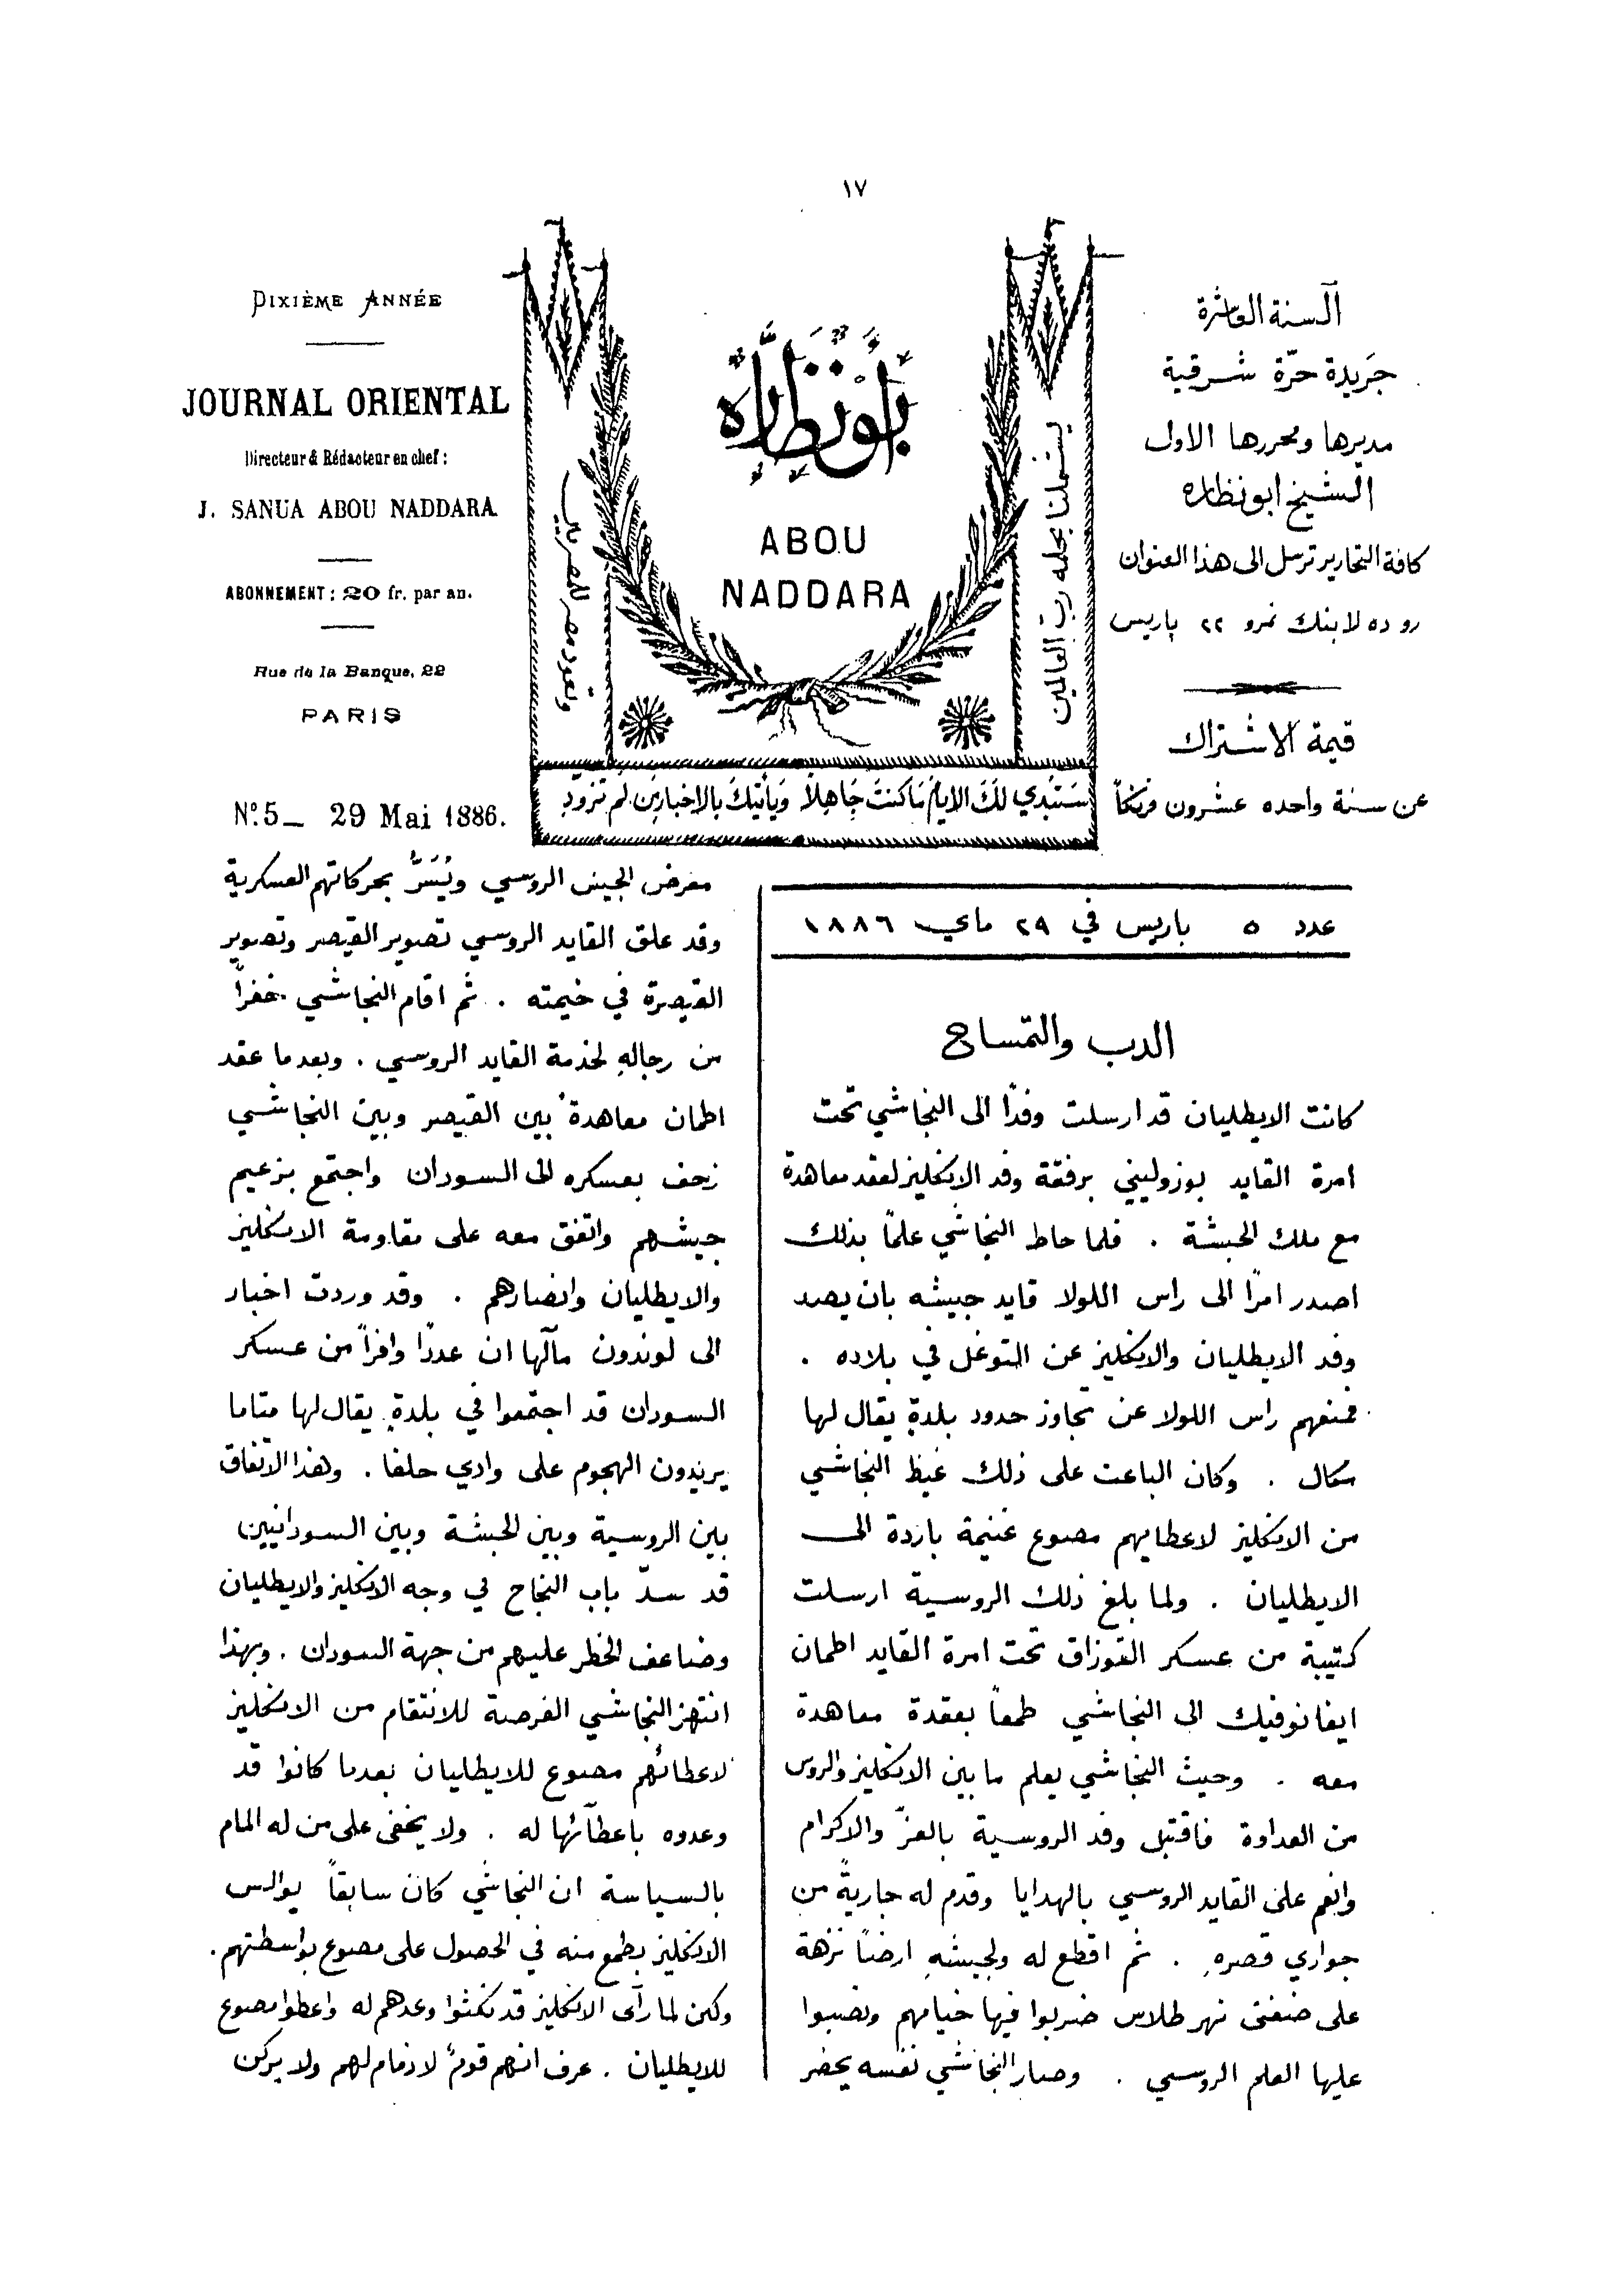 ١٧
DIXIÈME ANNÉE
JOURNAL ORIENTAL
Directeur & Rédacteur en chef :
J. SANUA ABOU NADDARA
ABONNEMENT : 20 fr. par an.
Rue de la Banque, 22
PARIS
Nº. 5 _ 29 Mai 1886.
ابو نظاره
ABOU
NADDARA
يشملنا بحلمه رب العالمين
وتعود مصر للمصريين
سَتُبدِي لَكَ الايامُ مَا كنتَ جَاهِلاً وَيأتيكَ بالاخبارِ مَن لم تزودِ
السنة العاشرة
جَريدة حرّة شرقية
مديرها ومحررها الاول
الشيخ ابو نظاره
كافة التحارير ترسل الى هذا العنوان
رو ده لا بنك نمرو ٢٢ پاريس
قيمة الاشتراك
عن سنة واحده عشرون فرنكاً
عدد ٥ باريس في ٢٩ ماي ١٨٨٦
الدب والتمساح
كانت الايطليان قد ارسلت وفدًا الى النجاشي تحت
امرة القايد بوزوليني برفقة وفد الانكليز لعقد معاهدة
مع ملك الحبشة . فلما حاط النجاشي علمًا بذلك
اصدر امرًا الى راس اللولا قايد جيشه بان يصد
وفد الايطليان والانكليز عن التوغل في بلاده .
فمنعهم راس اللولا عن تجاوز حدود بلدةٍ يقال لها
وكان الباعث على ذلك غيظ النجاشي
من الانكليز لاعطايهم مصوع غنيمة باردة الى
الايطليان . ولما بلغ ذلك الروسية ارسلت
كتيبة من عسكر القوزاق تحت امرة القايد اطمان
ايفانوفيك الى النجاشي طمعاً بعقدة معاهدة
معه . وحيث النجاشي يعلم ما بين الانكليز والروس
من العداوة فاقتبل وفد الروسية بالعزّ والاكرام
وانعم على القايد الروسي بالهدايا وقدم له جاريةً من
جواري قصرهِ . ثم اقطع له ولجيشهِ ارضاً نزهة
على ضفتى نهر طلاس ضربوا فيها خيامهم ونصبوا
عليها العلم الروسي . وصار النجاشي نفسه يحضر
معرض الجيش الروسي ويُسَرُّ بحركاتهم العسكرية
وقد علق القايد الروسي تصوير القيصر وتصوير
القيصرة في خيمته . ثم اقام النجاشي خفراً
من رجالهِ لخدمة القايد الروسي . وبعدما عقد
اطمان معاهدة بين القيصر وبين النجاشي
زحف بعسكره الى السودان واجتمع بزعيم
جيشهم واتفق معه على مقاومة الانكليز
والايطليان وانصارهم . وقد وردت اخبار
الى لوندون مآلها ان عددًا وافراً من عسكر
السودان قد اجتمعوا في بلدةٍ يقال لها متاما
يريدون الهجوم على وادي حلفا . وهذا الاتفاق
بين الروسية وبين الحبشة وبين السودانيين
قد سدّ باب النجاح في وجه الانكليز والايطليان
وضاعف الخطر عليهم من جهة السودان . وبهذا
انتهز النجاشي الفرصة للانتقام من الانكليز
لاعطائهم مصوع للايطليان بعدما كانوا قد
وعدوه باعطآئها له . ولا يخفى على من له المام
بالسياسة ان النجاشي كان سابقاً يوالس
الانكليز بطمع منه في الحصول على مصوع بواسطتهم .
ولكن لما رآى الانكليز قد نكثوا وعدهم له واعطوا مصوع
للايطليان . عرف انهم قومٌ لا ذمام لهم ولا يركن